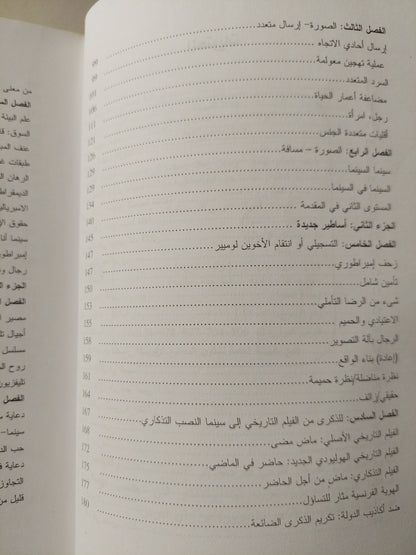 الفصل الثالث: الصورة– إرسال متعدد
إرسال أحادي الاتجاه 99
عملية تهجين معولمة 99
السرد المتعدد
مضاعفة أعمار الحياة 106
رجل، امرأة 113
أقليات متعددة الجنس 121
الفصل الرابع: الصورة – مسافة 126
سينما السينما 129
السينما في السينما 129
المستوى الثاني في المقدمة 134
الجزء الثاني: أساطير جديدة 140
الفصل الخامس: التسجيلي أو انتقام الأخوين لوميير 145
زحف إمبراطوري 147
تأمين شامل 147
شيء من الرضا التأملي 150
الاعتيادي والحميم 153
الرجال بآلة التصوير 155
(إعادة) بناء الواقع 158
نظرة مناضلة/نظرة حميمة 159
حقيقي/زائف 161
الفصل السادس: للذكرى من الفيلم التاريخي إلى سينما النصب التذكاري 167
الفيلم التاريخي الأصلي: ماض مضى 168
الفيلم التاريخي الهوليودي الجديد: حاضر في الماضي 172
الفيلم التذكاري: ماض من أجل الحاضر 175
الهوية الفرنسية مثار للتساؤل 177
ضد أكاذيب الدولة: تكريم الذكرى الضائعة 180
من معنى
الفصل
علم البيئة
السوق:
عنف
طبقات
الرهان
الديمقراط
حقوق الإ
سينما
إمبراطو
رجال و
الجزء
الفصل ا
مصير
أجيال
مسلسل
روح
تليفزيون
الفصل
دعاية
سينما–
حب
دعاية ف
التجاوز
قليل من